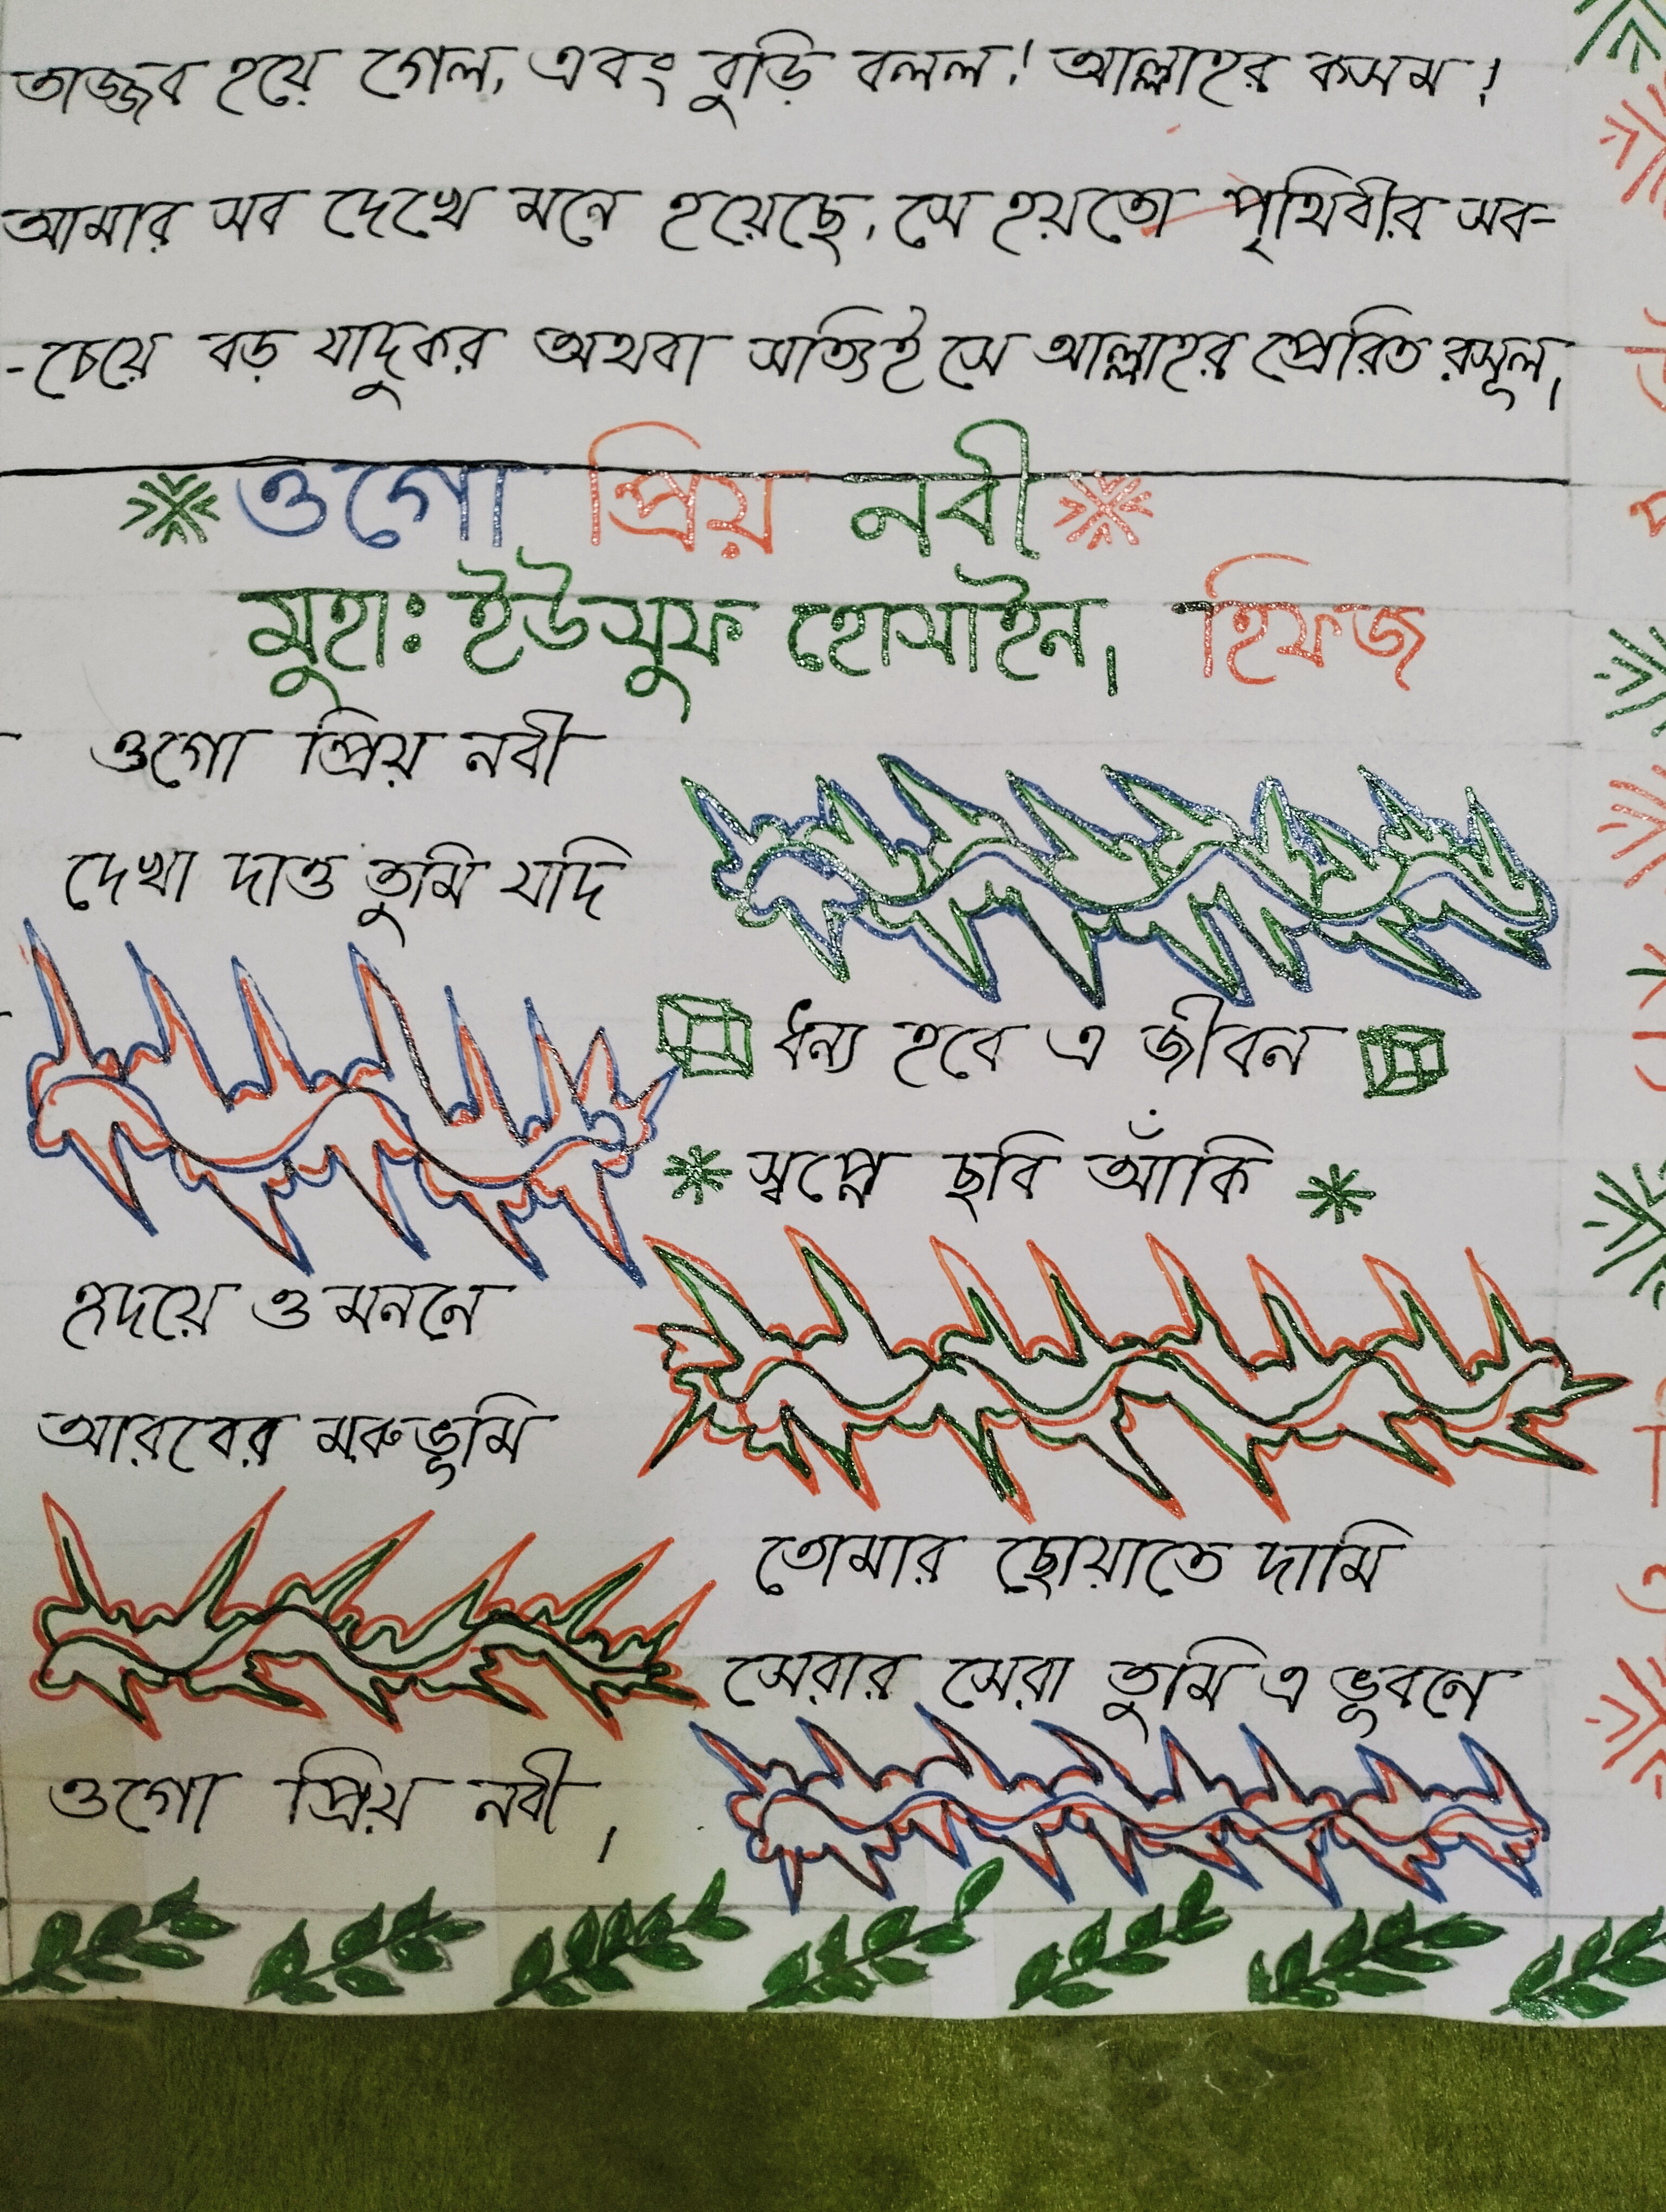 তাজ্জব হয়ে গেল, এবং বুড়ি বলল! আল্লাহর কসম!
আমার সব দেখে মনে হয়েছে, সে হয়তো পৃথিবীর সব-
-চেয়ে বড় যাদুকর অথবা সত্যিই সে আল্লাহর প্রেরিত রসূল।
ওগো প্রিয় নবী
মুহাঃ ইউসুফ হোসাইন। হিফজ
ওগো প্রিয় নবী
দেখা দাও তুমি যদি
ধন্য হবে এ জীবন
স্বপ্নে ছবি আঁকি
হৃদয়ে ও মননে
আরবের মরুভূমি
তোমার ছোয়াতে দামি
সেরার সেরা তুমি এ ভূবনে
ওগো প্রিয় নবী।